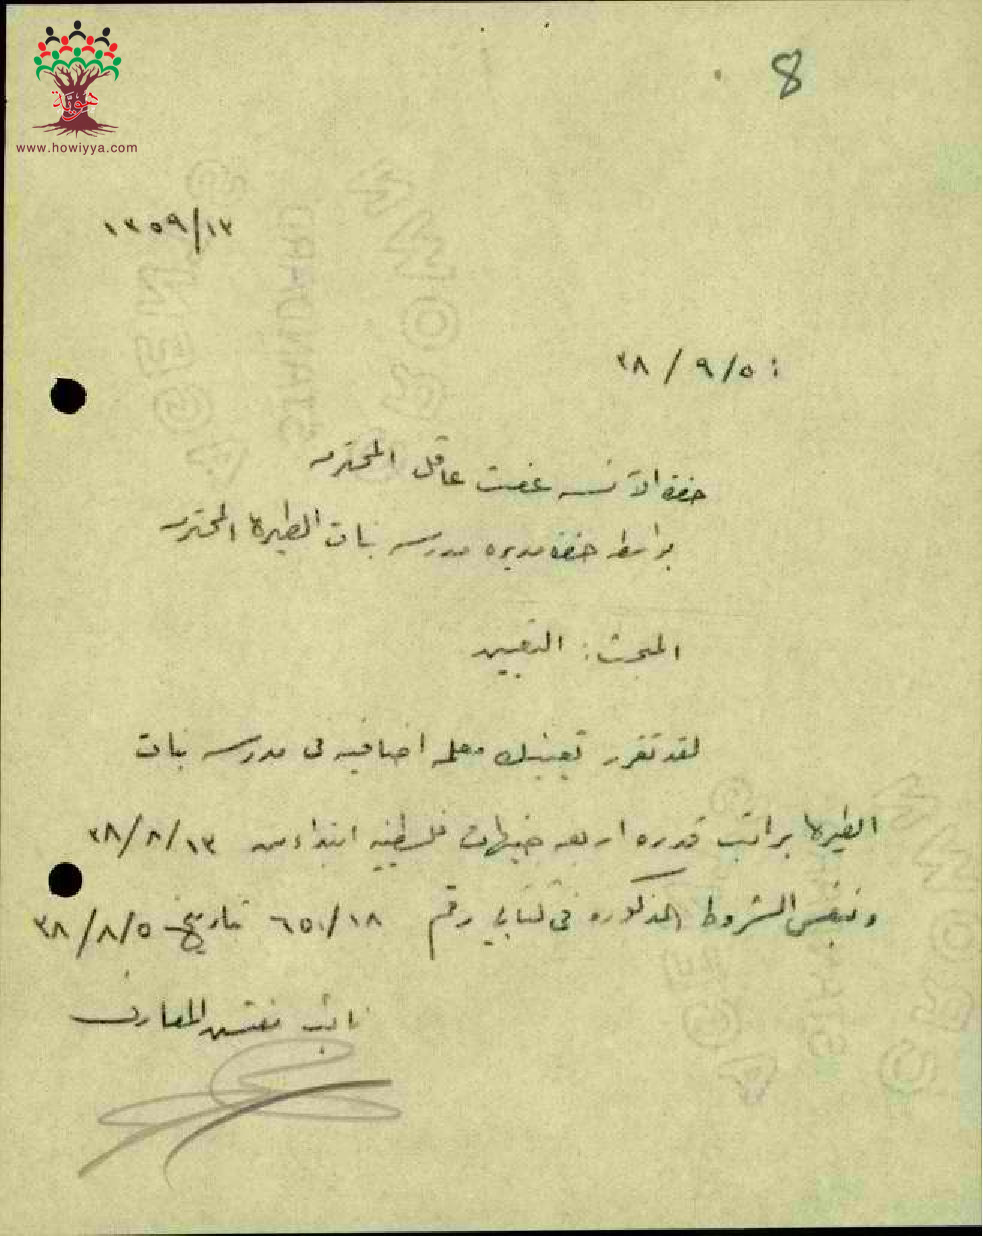 هوية
www.howiyya.com
8
١٣٥٩/١٣
٣٨/٩/٥
حضرة الآنسه عفت عاقل المحترمه
بواسطة حضرة مديره مدرسه بنات الطيرة المحترمه
المبحث: التعيين
لقد تقرر تعيينك معلمه اضافيه في مدرسه بنات
الطيرة براتب قدره اربعه جنيهات فلسطينيه ابتداء من ٣٨/٨/١٣
وبنفس الشروط المذكوره في كتابي رقم ٦٥١/١٨ تاريخ ٣٨/٨/٥
نائب مفتش المعارف